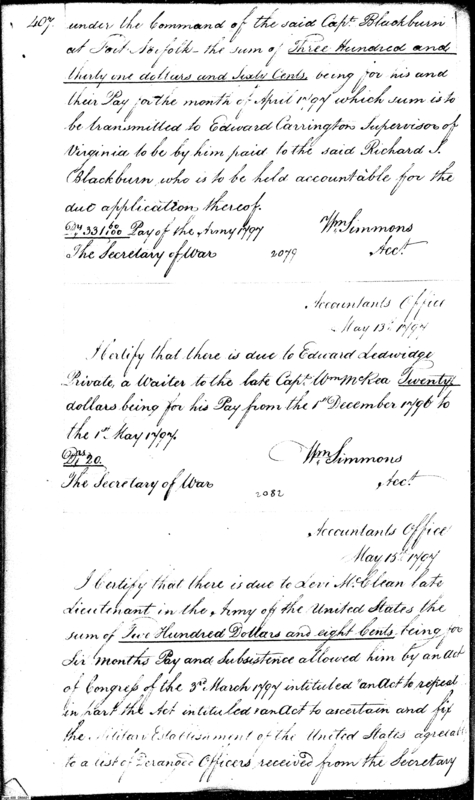 407.
under the Command of the said Capt. Blackburn
at Fort Norfolk — the sum of Three Hundred and
thirty one dollars and Sixty Cents, being for his and
their Pay for the month of April 1797 which sum is to
be transmitted to Edward Carrington Supervisor of
Virginia to be by him paid to the said Richard S.
Blackburn who is to be held accountable for the
due application thereof.
331 60/100 Pay of the Army 1797 Wm Simmons
The Secretary of War 2079 Acct.
Accountants Office
May 13th 1797
I Certify that there is due to Edward Ledwidge
Private, a Waiter to the late Capt. Wm McRea Twenty
dollars being for his Pay from the 1st December 1796 to
the 1st May 1797.
Drs 20. Wm Simmons
The Secretary of War 2082 Acct.
Accountants Office
May 15th 1797
I Certify that there is due to Levi McClean late
Lieutenant in the Army of the United States the
sum of Two Hundred Dollars and eight Cents, being for
Six months Pay and Subsistence allowed him by an Act
of Congress of the 3rd March 1797 intituled "an Act to repeal
in part the Act intituled "an Act to ascertain and fix
the Military Establishment of the United States agreeable
to a list of Deranged Officers received from the Secretary